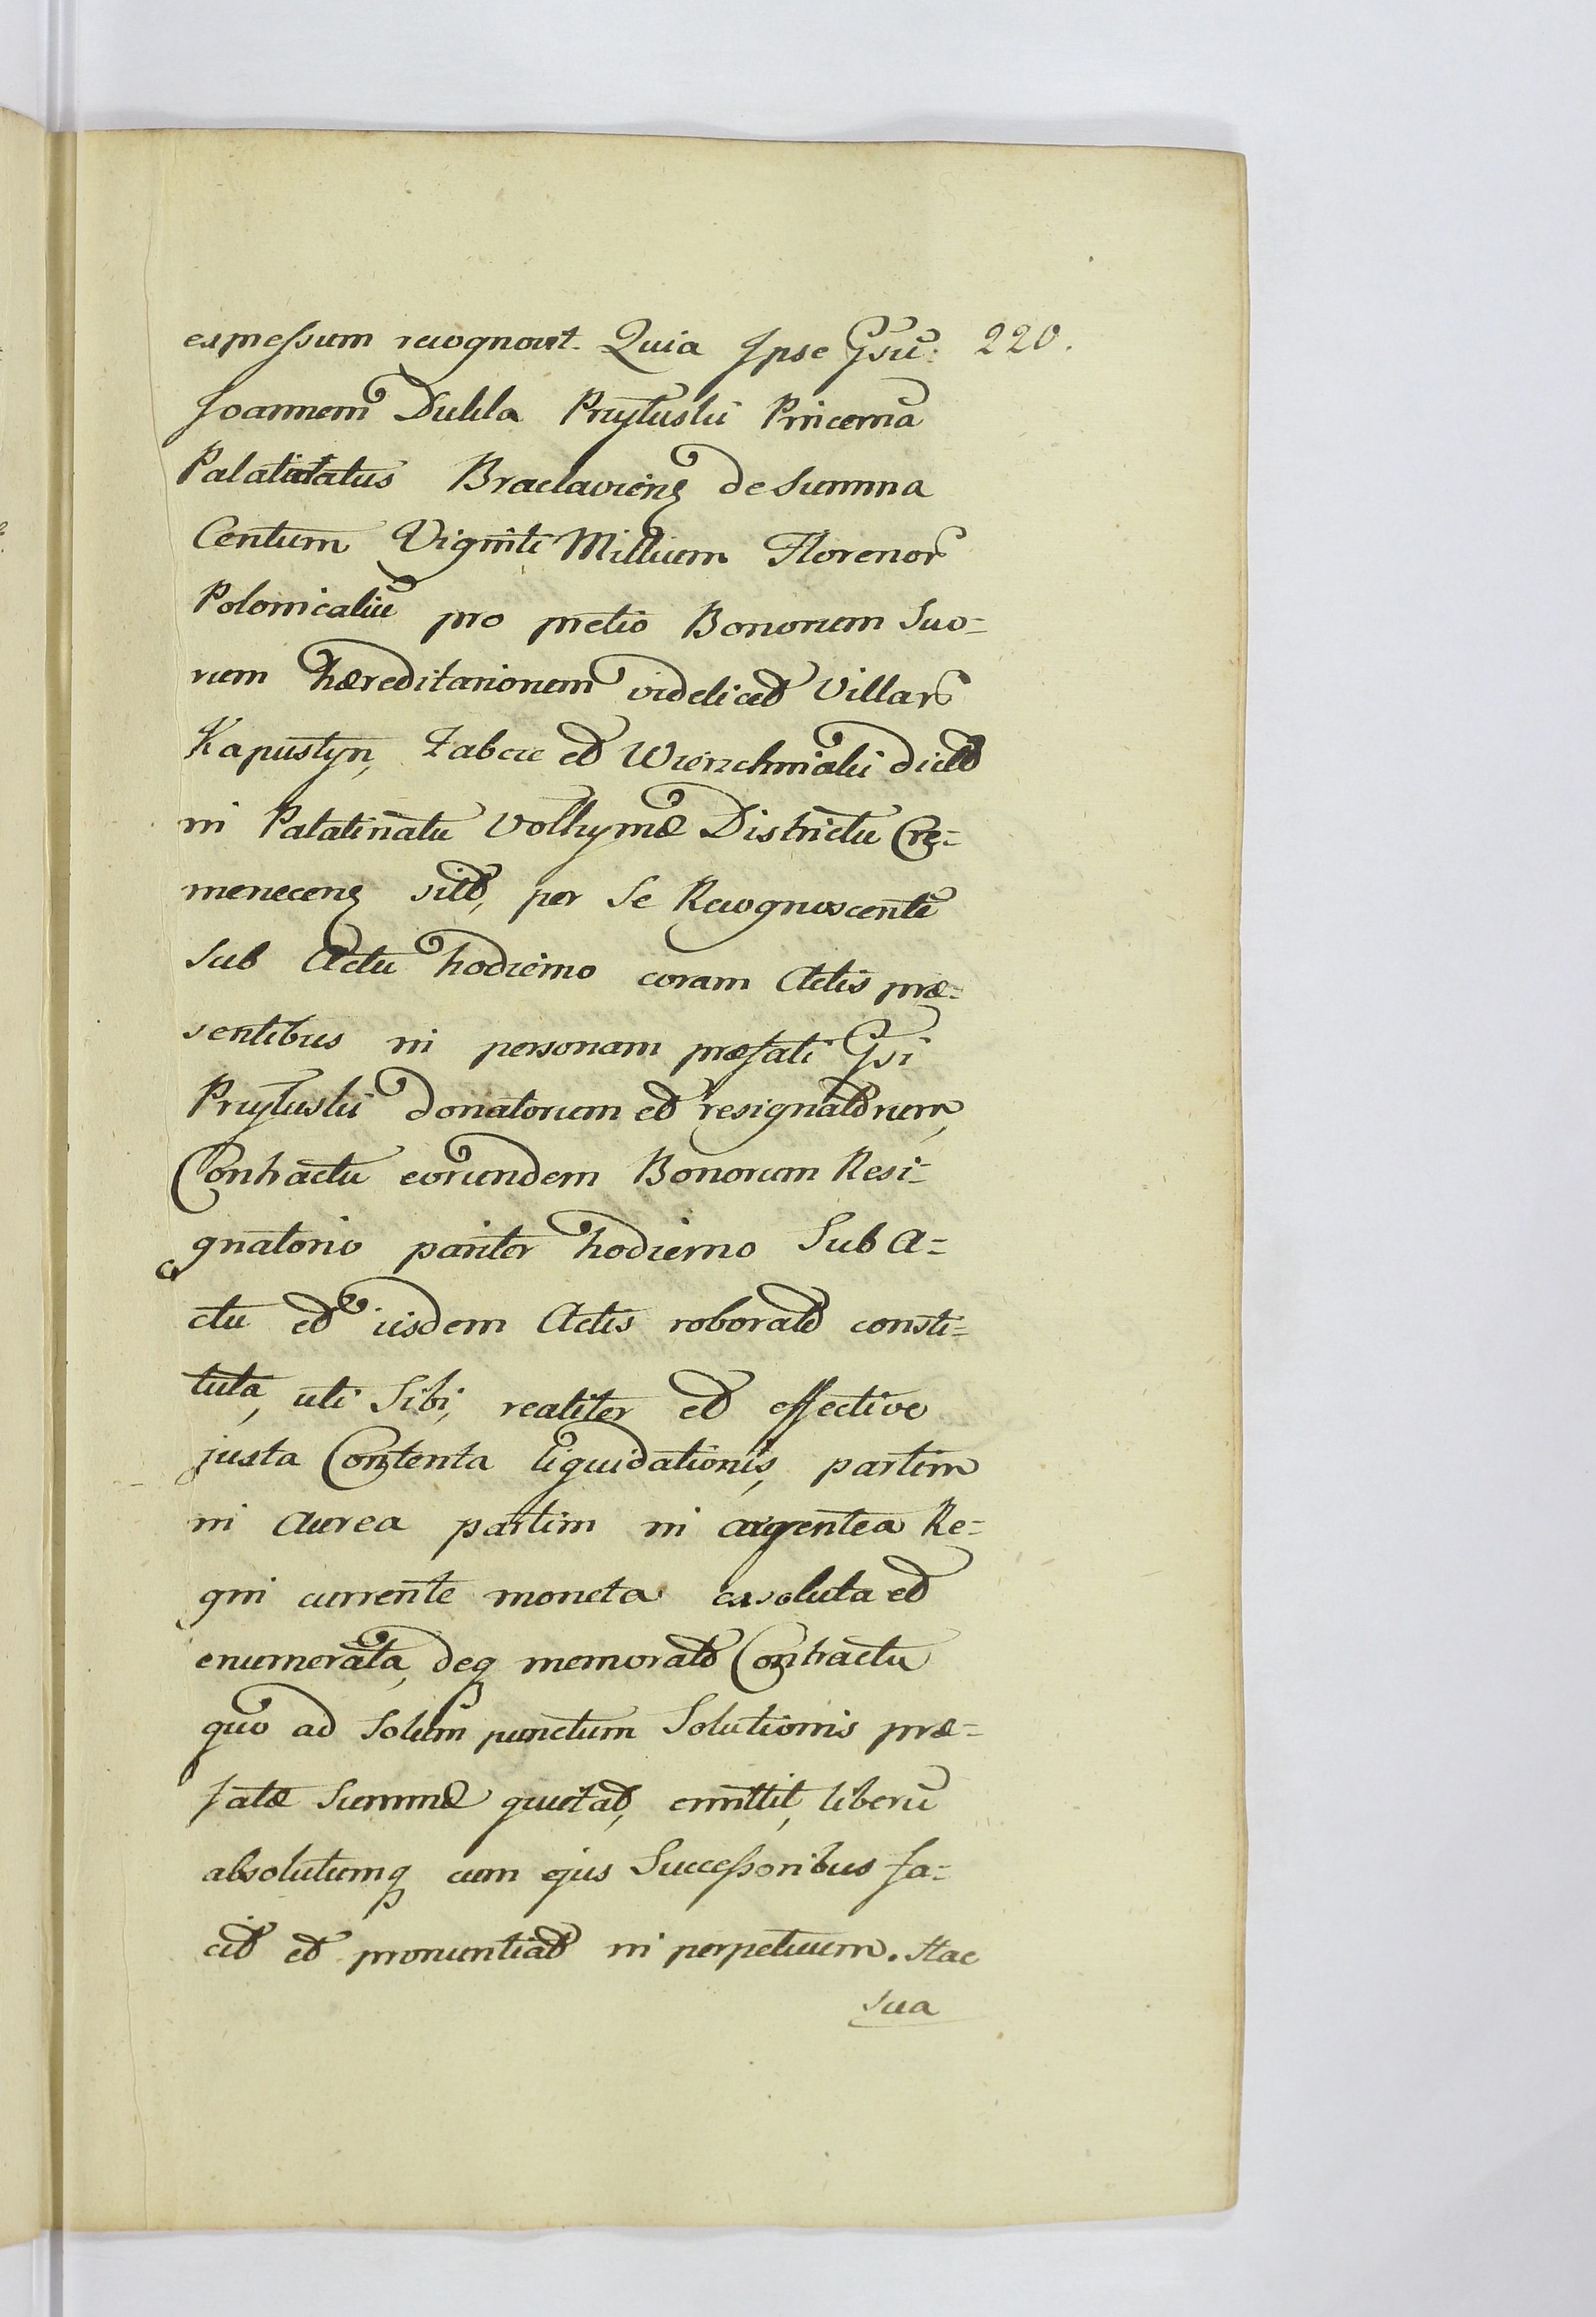 expressum recognovit. Quia Ipse Gsũ: 220.
Joannem Dukla Przyłuski Pincernã
Palatinatus Braclaviens de Summa
Centum Viginti Millium Florenor
Polonicaliũ pro pretio Bonorum Suo=
rum hæreditariorum videlicet Villar
Kapustyn, Łabcie et Wierzchniaki dict
in Palatinatu Volhyniæ Districtu Cre=
menecens sit, per Se Recognoscentẽ
Sub Actu hodierno coram Actis præ=
sentibus in personam præfati Gsi
Przyłuski donatorum et resignatorum,
Contractu eorundem Bonorum Resi=
gnatorio pariter hodierno Sub A=
ctu et iisdem Actis roborat consti=
tuta, uti Sibi, realiter et effective
juxta Contenta liquidationis, partim
in aurea partim in argentea Re=
gni currente moneta exsoluta et
enumerata, deq memorat Contractu
quo ad Solum punctum Solutionis præ=
fatæ Summæ quietat, emittit, liberũ
absolutumq cum ejus Successoribus fa=
cit et pronuntiat in perpetuum. Hac
Sua